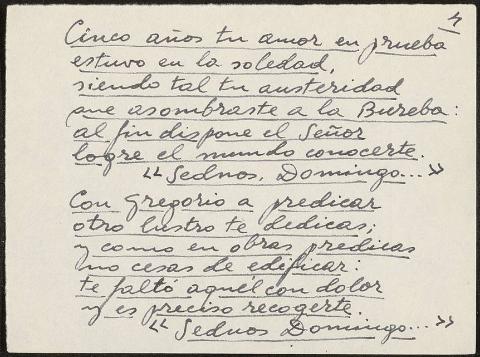 4
Cinco años tu amor en prueba
estuvo en la soledad,
siendo tal tu austeridad
que asombraste a la Bureba:
al fin dispone el Señor
logre el mundo conocerte.
"Sednos, Domingo..."
Con Gregorio a predicar
otro lustro te dedicas;
y como en obras predicas
no cesas de edificar:
te faltó aquél con dolor
y es preciso recogerte.
"Sednos Domingo..."